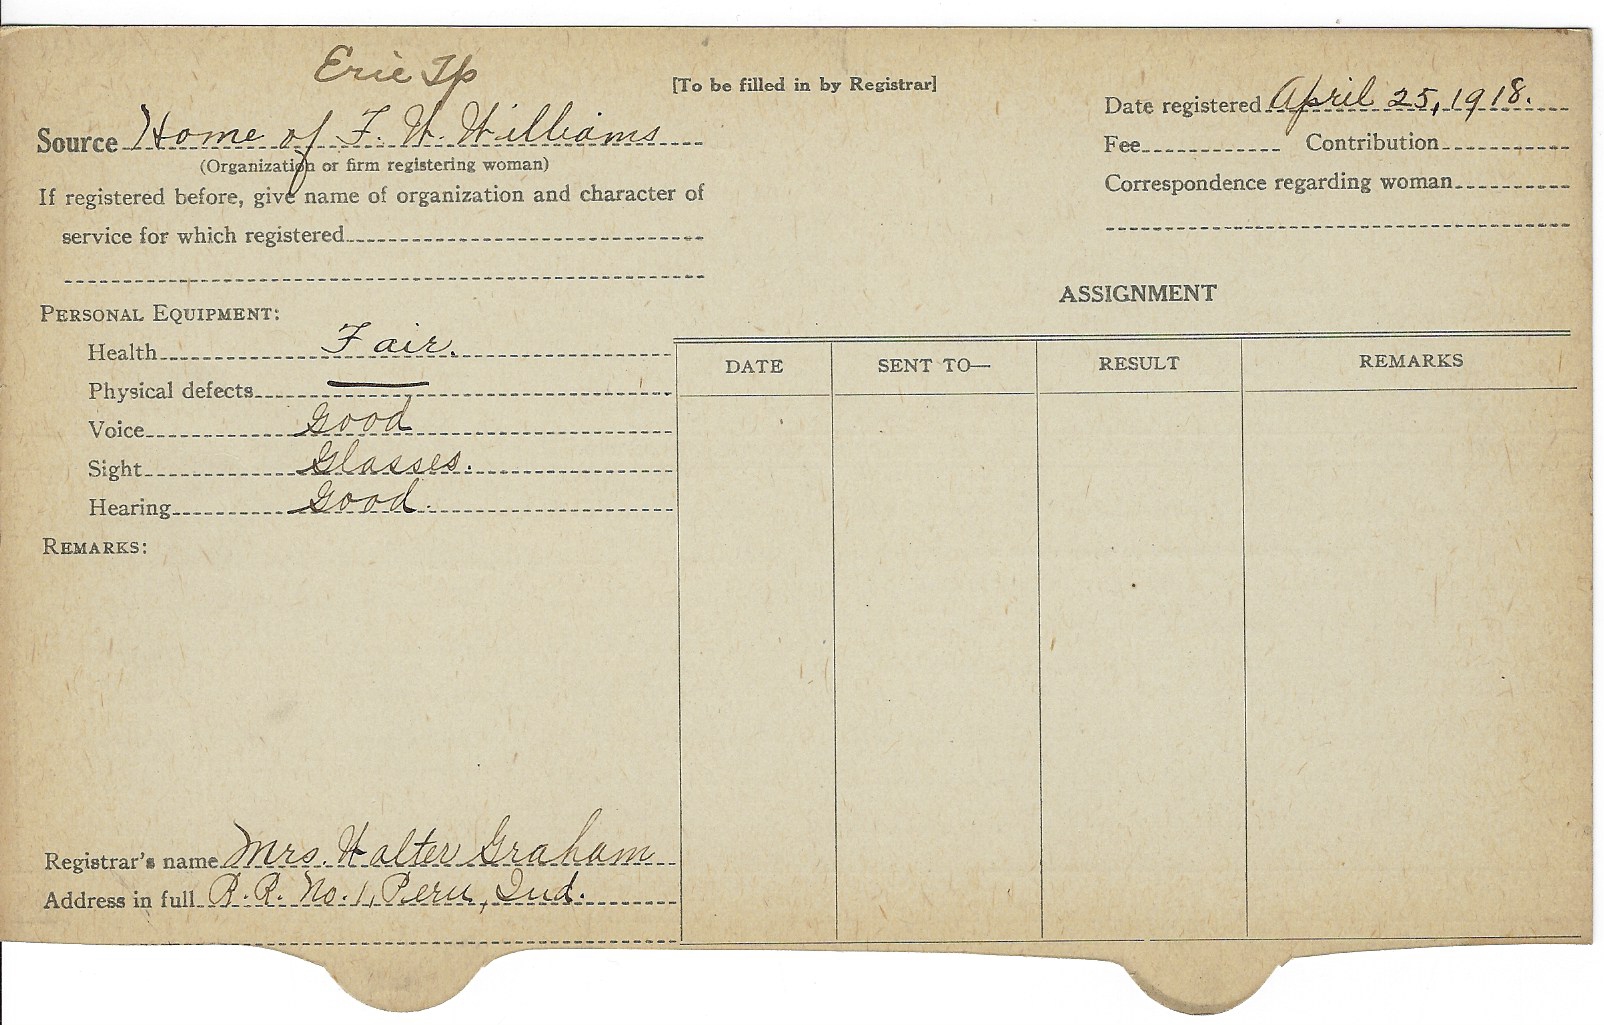 Erie Tp
[To be filled in by Registrar]
Date registered April 25, 1918.
Source Home of F. W. Williams
(Organization or firm registering woman)
Fee Contribution
Correspondence regarding woman
If registered before, give name of organization and character of
service for which registered
ASSIGNMENT
PERSONAL EQUIPMENT:
Health Fair.
Physical defects —
Voice Good
Sight Glasses.
Hearing Good.
REMARKS:
DATE SENT TO— RESULT REMARKS
Registrar's name Mrs. Walter Graham
Address in full R. R. No. 1, Peru, Ind.